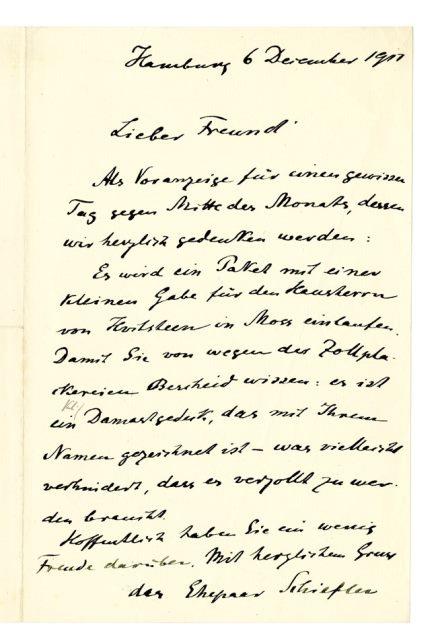 Hamburg 6 December 1911
Lieber Freund
Als Voranzeige für einen gewissen
Tag gegen Mitte des Monats, dessen
wir herzlich gedenken werden:
Es wird ein Paket mit einer
kleinen Gabe für den Hausherrn
von Hvitsteen in Moss einlaufen.
Damit Sie von wegen der Zollpla-
ckereien Bescheid wissen: es ist
ein Damastgedeck, das mit Ihrem
Namen gezeichnet ist – was vielleicht
verhindert, dass es verzollt zu wer-
den braucht.
Hoffentlich haben Sie ein wenig
Freude darüber. Mit herzlichem Gruss
das Ehepaar Schiefler